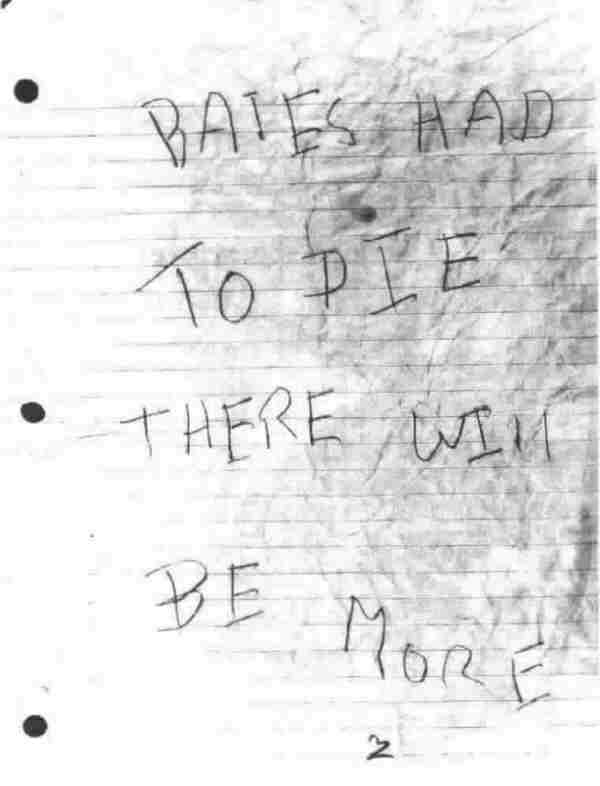 BATES HAD
TO DIE
THERE WILL
BE MORE
Z